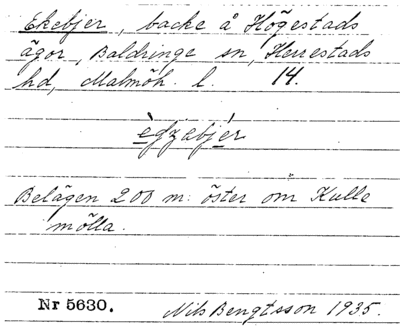 Ekebjer, backe å Högestads
ägor, Baldringe sn, Herrestads
hd, Malmöh. l. 14.
ègzabjér
Belägen 200 m. öster om Kulle
mölla.
Nr 5630. Nils Bengtsson 1935.